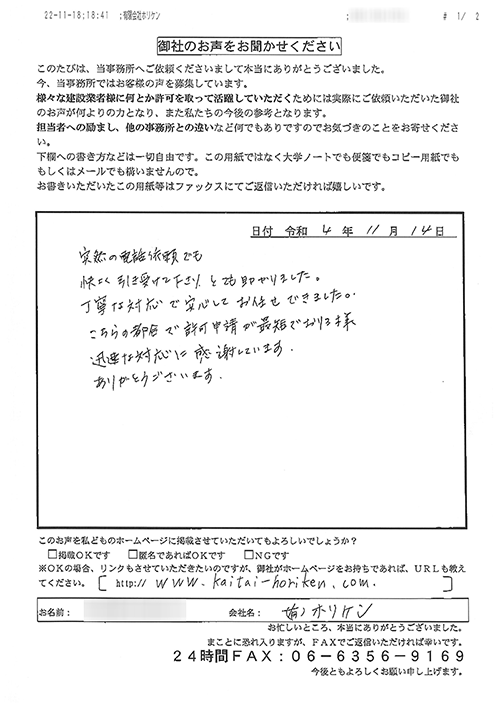 22-11-18;18:41 ;有限会社ホリケン ; # 1/ 2
御社のお声をお聞かせください
このたびは、当事務所へご依頼くださいまして本当にありがとうございました。
今、当事務所ではお客様の声を募集しています。
様々な建設業者様に何とか許可を取って活躍していただくためには実際にご依頼いただいた御社
のお声が何よりの力となり、また私たちの今後の参考となります。
担当者への励まし、他の事務所との違いなど何でもありですのでお気づきのことをお寄せくださ
い。
下欄への書き方などは一切自由です。この用紙ではなく大学ノートでも便箋でもコピー用紙でも
もしくはメールでも構いませんので。
お書きいただいたこの用紙等はファックスにてご返信いただければ嬉しいです。
日付 令和 4 年 11 月 14 日
突然の電話依頼でも
快く引き受けて下さりとても助かりました。
丁寧な対応で安心してお任せできました。
こちらの都合で許可申請が最短でおりる様
迅速な対応に感謝しています。
ありがとうございます。
このお声を私どものホームページに掲載させていただいてもよろしいでしょうか?
□掲載OKです □匿名であればOKです □NGです
※OKの場合、リンクもさせていただきたいのですが、御社がホームページをお持ちであれば、URLも教え
てください。[ http://www.kaitai-horiken.com. ]
お名前: 会社名: (有)ホリケン
お忙しいところ、本当にありがとうございました。
まことに恐れ入りますが、FAXでご返信いただければ幸いです。
24時間FAX:06-6356-9169
今後ともよろしくお願い申し上げます。